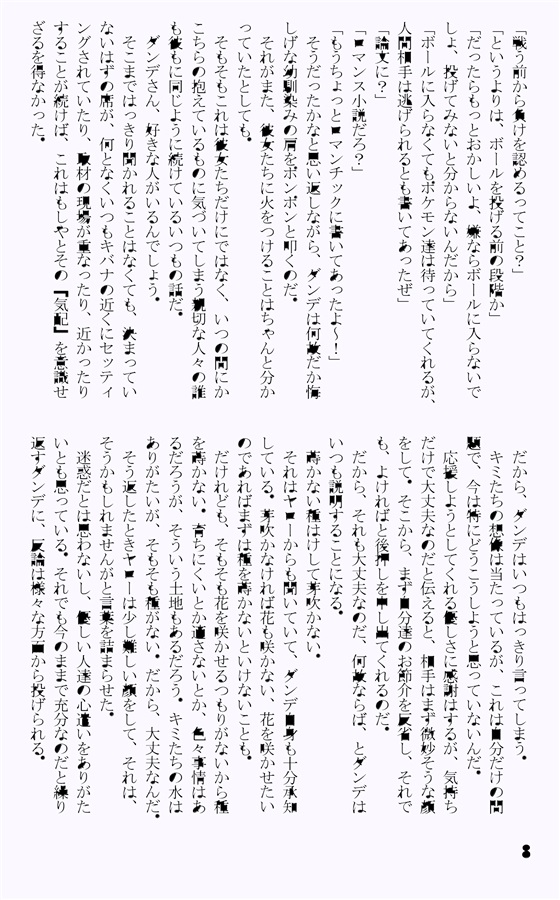 「戦う前から負けを認めるってこと？」
「というよりは、ボールを投げる前の段階か」
「だったらもっとおかしいよ、嫌ならボールに入らないで
しょ、投げてみないと分からないんだから」
「ボールに入らなくてもポケモン達は待っていてくれるが、
人間相手は逃げられるとも書いてあったぜ」
「論文に？」
「ロマンス小説だろ？」
「もうちょっとロマンチックに書いてあったよ〜！」
　そうだったかなと思い返しながら、ダンデは何故だか悔
しげな幼馴染みの肩をポンポンと叩くのだ。
　それがまた、彼女たちに火をつけることはちゃんと分か
っていたとしても。
　そもそもこれは彼女たちだけにではなく、いつの間にか
こちらの抱えているものに気づいてしまう親切な人々の誰
も彼もに同じように続けているいつもの話だ。
　ダンデさん、好きな人がいるんでしょう。
　そこまではっきり聞かれることはなくても、決まってい
ないはずの席が、何となくいつもキバナの近くにセッティ
ングされていたり、取材の現場が重なったり、近かったり
することが続けば、これはもしやとその『気配』を意識せ
ざるを得なかった。
　だから、ダンデはいつもはっきり言ってしまう。
　キミたちの想像は当たっているが、これは自分だけの問
題で、今は特にどうこうしようと思っていないんだ。
　応援しようとしてくれる優しさに感謝はするが、気持ち
だけで大丈夫なのだと伝えると、相手はまず微妙そうな顔
をして。そこから、まず自分達のお節介を反省し、それで
も、よければと後押しを申し出てくれるのだ。
　だから、それも大丈夫なのだ、何故ならば、とダンデは
いつも説明することになる。
　蒔かない種はけして芽吹かない。
　それはヤローからも聞いていて、ダンデ自身も十分承知
している。芽吹かなければ花も咲かない、花を咲かせたい
のであればまずは種を蒔かないといけないことも。
　だけれども、そもそも花を咲かせるつもりがないから種
を蒔かない。育ちにくいとか適さないとか、色々事情はあ
るだろうが、そういう土地もあるだろう。キミたちの水は
ありがたいが、そもそも種がない。だから、大丈夫なんだ。
　そう返したときヤローは少し難しい顔をして、それは、
そうかもしれませんがと言葉を詰まらせた。
　迷惑だとは思わないし、優しい人達の心遣いをありがた
いとも思っている。それでも今のままで充分なのだと繰り
返すダンデに、反論は様々な方面から投げられる。
8